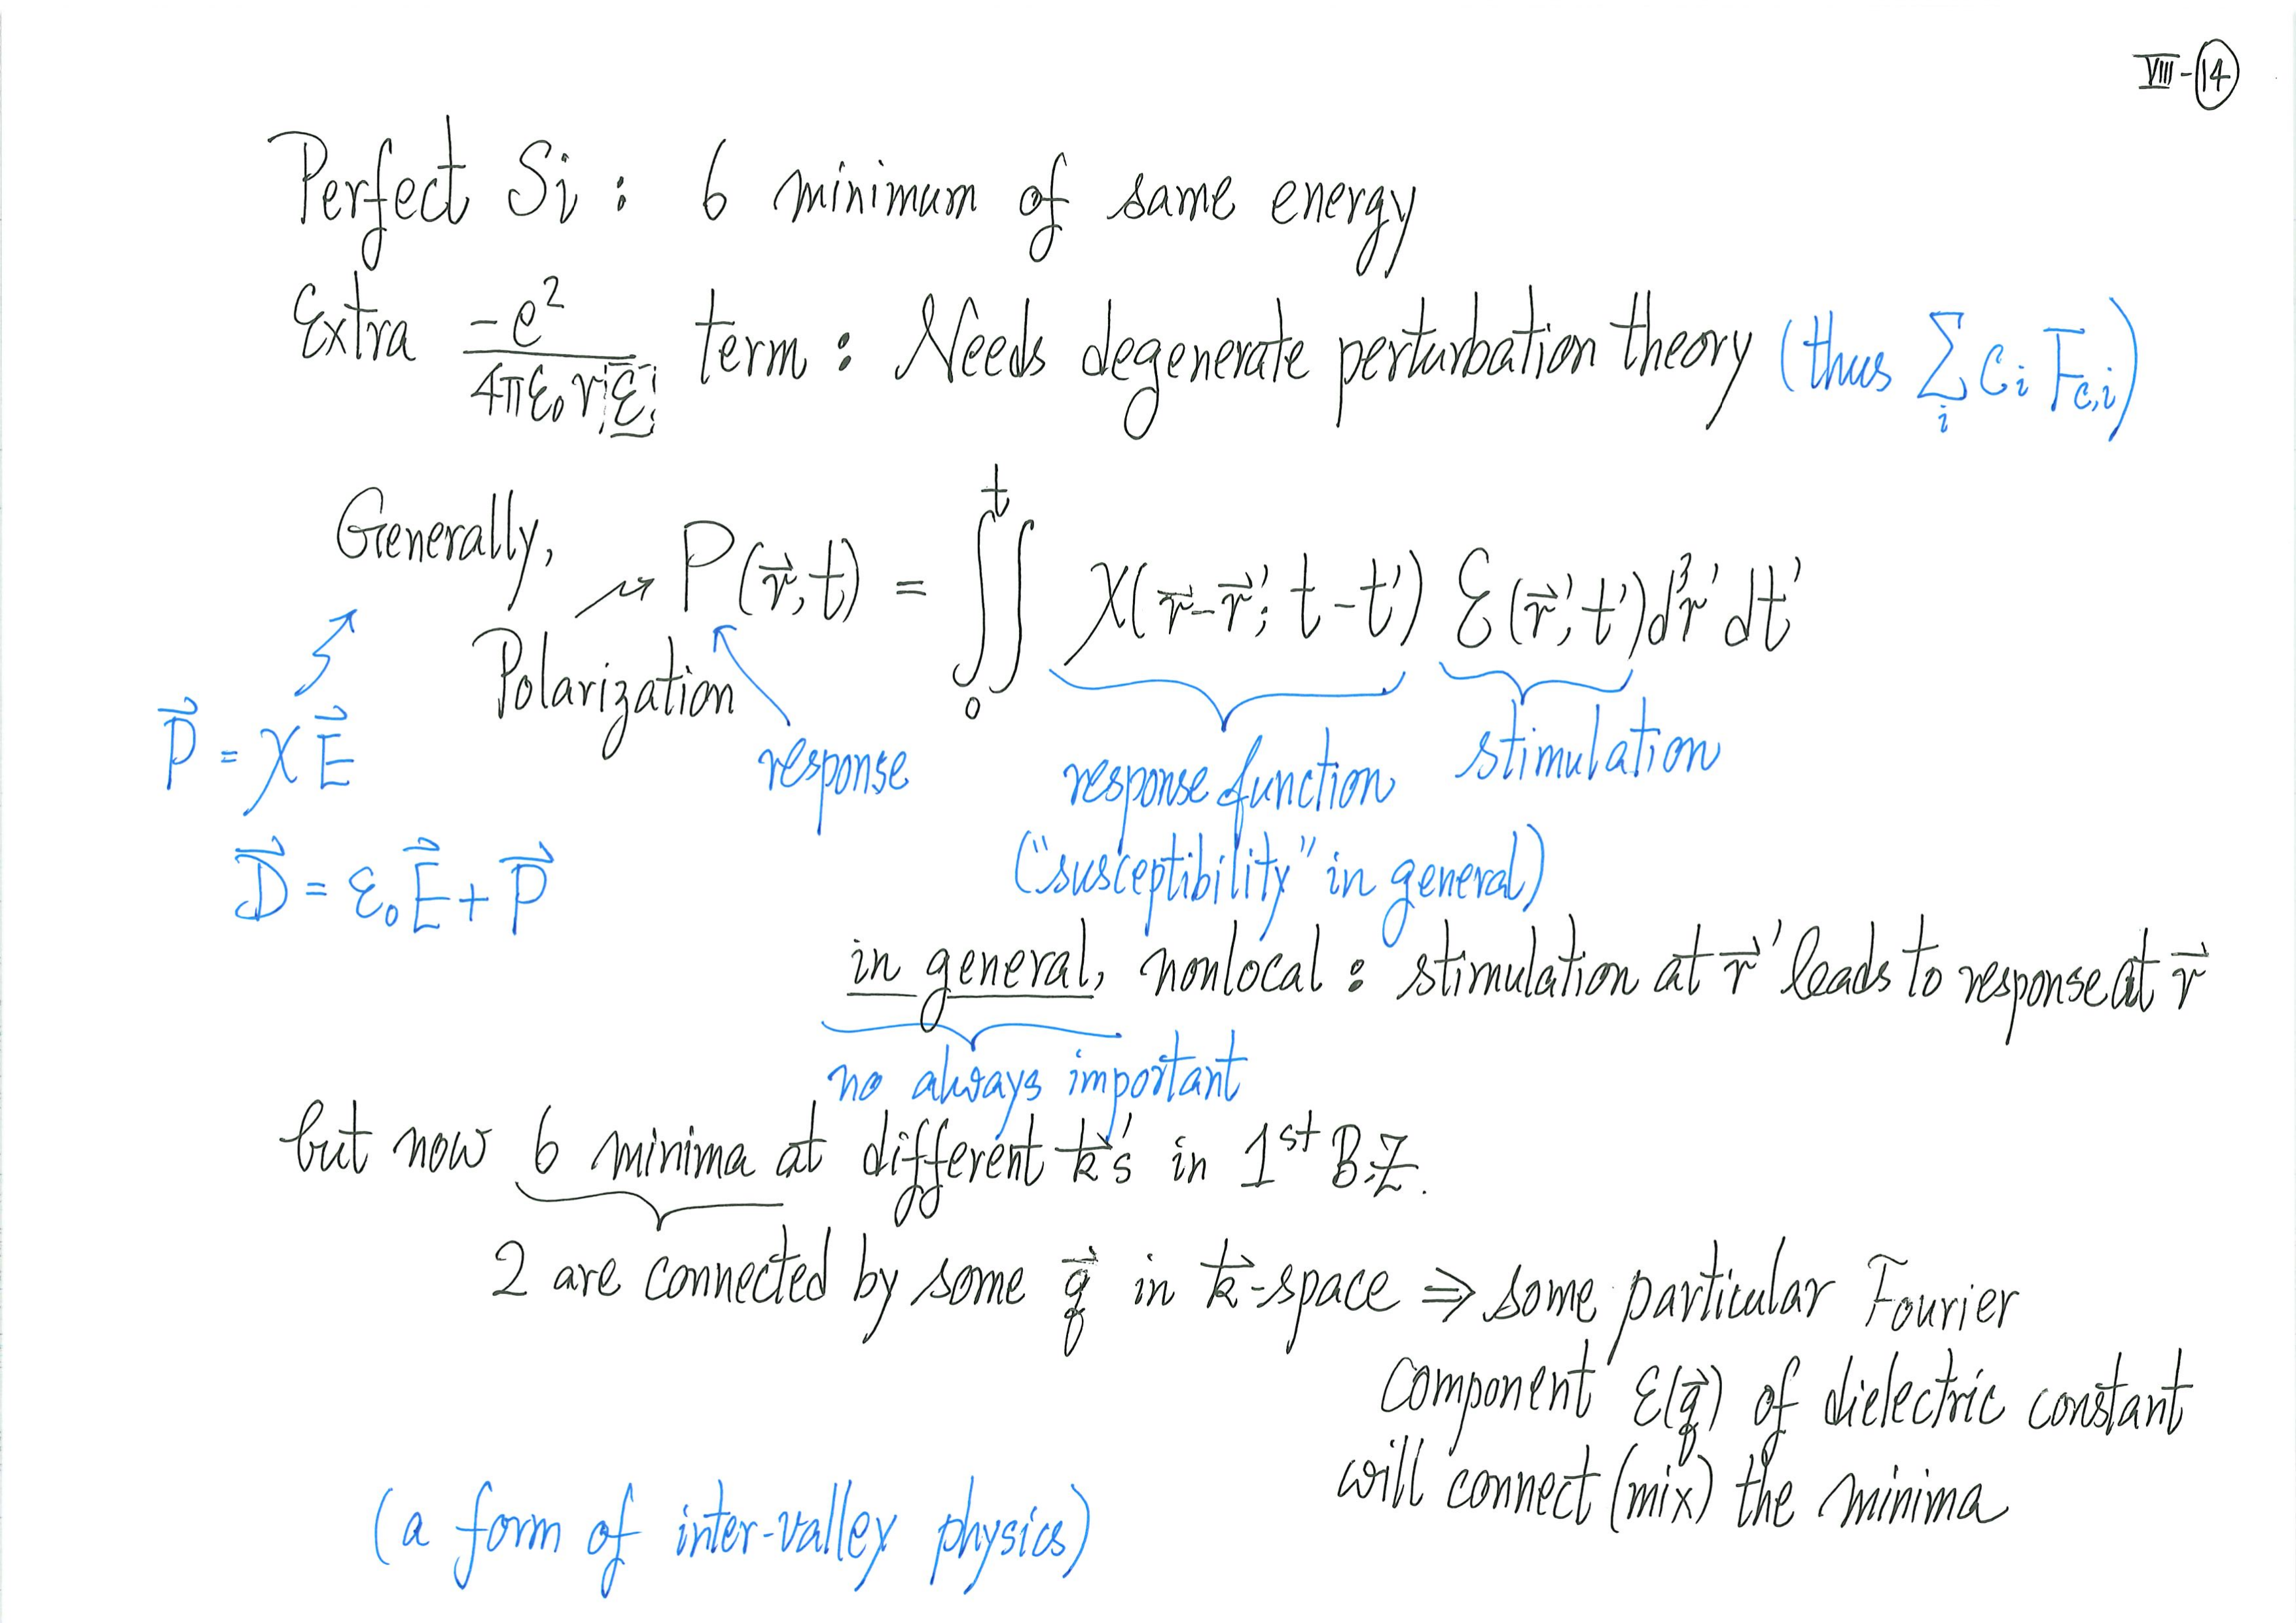 VIII-14
Perfect Si : 6 minimum of same energy
Extra -e²/(4πε₀rε) term : Needs degenerate perturbation theory (thus Σ_i C_i F_{c,i})
Generally,
Polarization → P(r⃗,t) = ∫₀ᵗ∫ χ(r⃗-r⃗'; t-t') ℰ(r⃗',t')d³r'dt'
P⃗ = χE⃗
response
response function
stimulation
("susceptibility" in general)
D⃗ = ε₀E⃗ + P⃗
in general, nonlocal : stimulation at r⃗' leads to response at r⃗
no always important
but now 6 minima at different k⃗'s in 1st B.Z.
2 are connected by some q⃗ in k⃗-space ⇒ some particular Fourier
component ε(q⃗) of dielectric constant
will connect (mix) the minima
(a form of inter-valley physics)